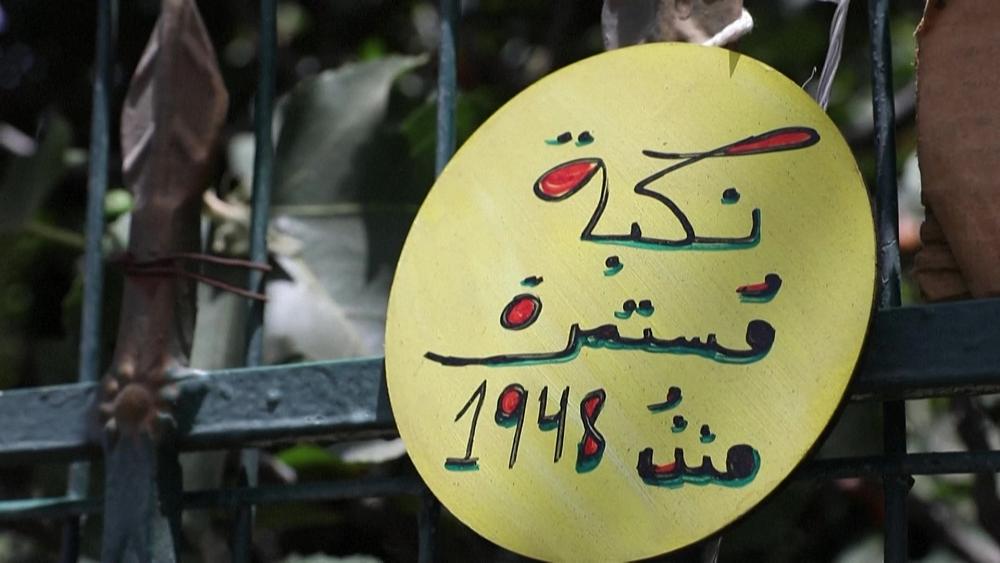 نكبة
مُستمرة
مُش 1948